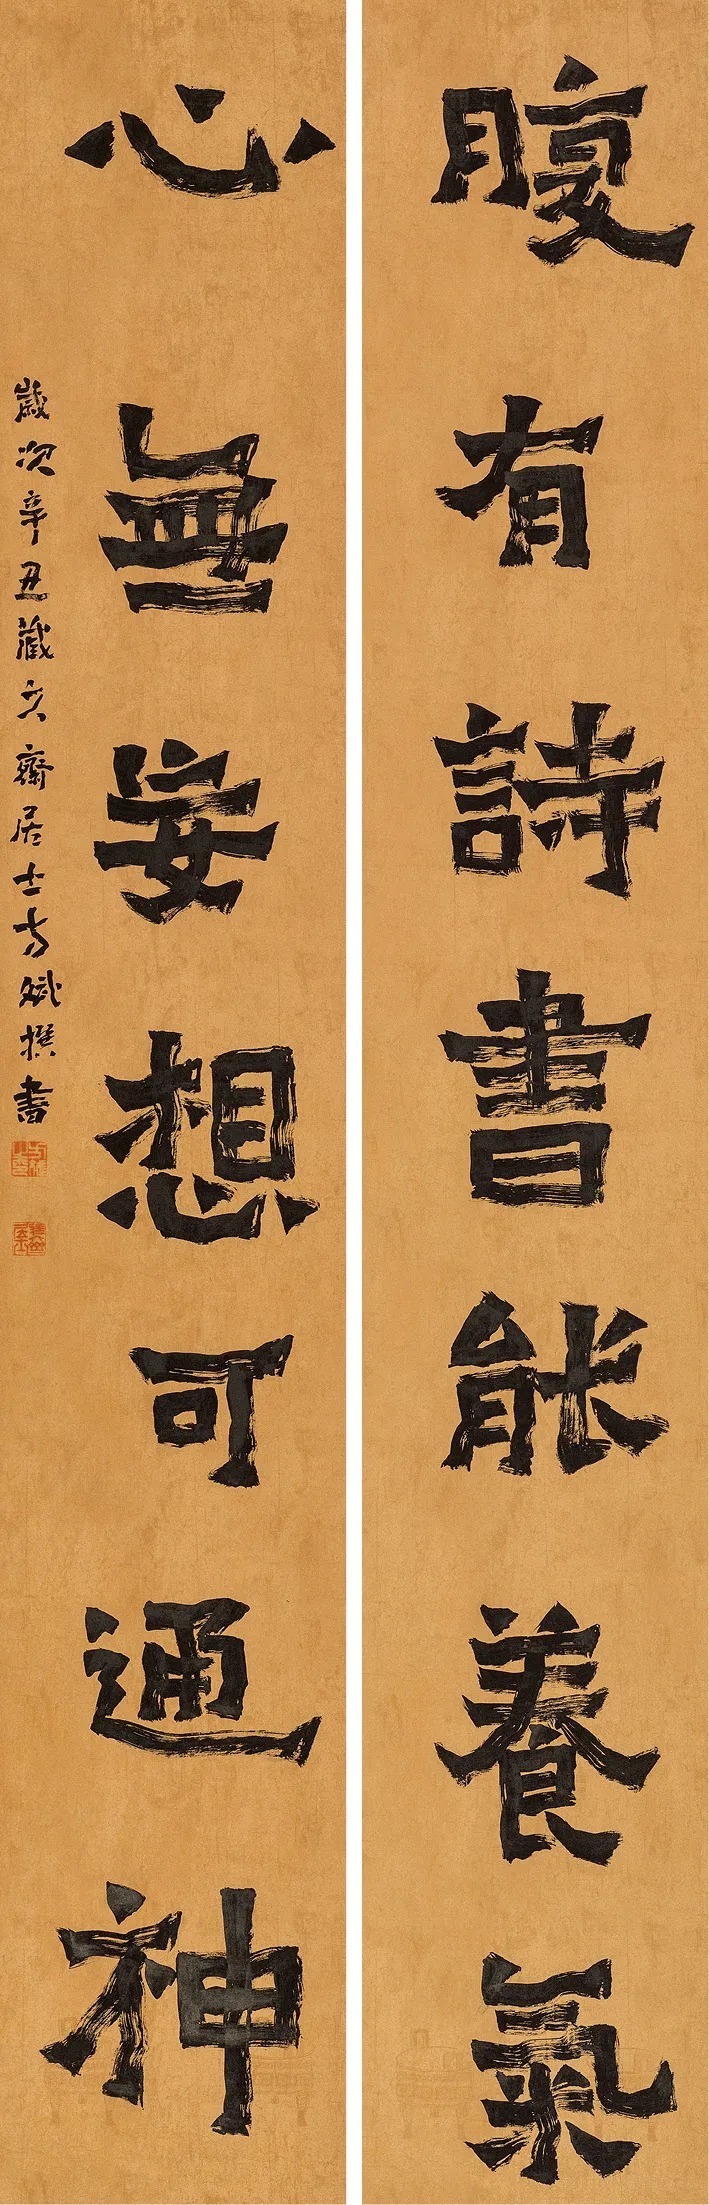 腹有詩書能養氣
心無妄想可通神
歲次辛丑藏六齋居士方斌撰書